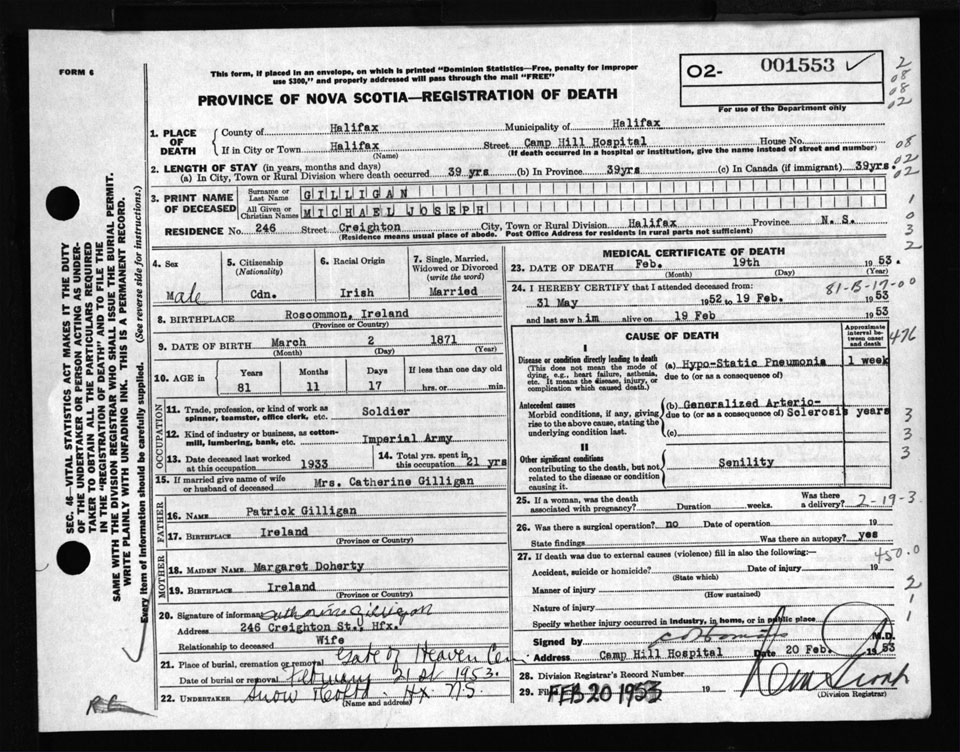 FORM 6
This form, if placed in an envelope, on which is printed "Dominion Statistics—Free, penalty for improper
use $300," and properly addressed will pass through the mail "FREE"
PROVINCE OF NOVA SCOTIA—REGISTRATION OF DEATH
02- 001553 ✓
For use of the Department only
2
08
08
02
1. PLACE OF DEATH
County of Halifax Municipality of Halifax
If in City or Town Halifax Street Camp Hill Hospital House No.
(Name) (If death occurred in a hospital or institution, give the name instead of street and number)
08
2. LENGTH OF STAY (in years, months and days)
(a) In City, Town or Rural Division where death occurred 39 yrs (b) In Province 39yrs (c) In Canada (if immigrant) 39yrs.
02
02
3. PRINT NAME OF DECEASED
Surname or Last Name GILLIGAN
All Given or Christian Names MICHAEL JOSEPH
1
0
RESIDENCE No. 246 Street Creighton City, Town or Rural Division Halifax Province N. S.
(Residence means usual place of abode. Post Office Address for residents in rural parts not sufficient)
3
2
4. Sex
Male
5. Citizenship (Nationality)
Cdn.
6. Racial Origin
Irish
7. Single, Married, Widowed or Divorced (write the word)
Married
8. BIRTHPLACE Roscommon, Ireland
(Province or Country)
9. DATE OF BIRTH March 2 1871
(Month) (Day) (Year)
10. AGE in Years Months Days If less than one day old
81 11 17 hrs. or min.
OCCUPATION
11. Trade, profession, or kind of work as spinner, teamster, office clerk, etc. Soldier
12. Kind of industry or business, as cotton-mill, lumbering, bank, etc. Imperial Army
13. Date deceased last worked at this occupation 1933
14. Total yrs. spent in this occupation 21 yrs
15. If married give name of wife or husband of deceased Mrs. Catherine Gilligan
FATHER
16. NAME Patrick Gilligan
17. BIRTHPLACE Ireland
(Province or Country)
MOTHER
18. MAIDEN NAME Margaret Doherty
19. BIRTHPLACE Ireland
(Province or Country)
20. Signature of informant Catherine Gilligan
Address 246 Creighton St., Hfx.
Relationship to deceased Wife
21. Place of burial, cremation or removal Gate of Heaven Cem
Date of burial or removal February 21st 1953.
22. UNDERTAKER Snow Hfx N.S.
(Name and address)
MEDICAL CERTIFICATE OF DEATH
23. DATE OF DEATH Feb. 19th 1953.
(Month) (Day) (Year)
24. I HEREBY CERTIFY that I attended deceased from: 81-B-17-00
31 May 1952 to 19 Feb. 1953
and last saw him alive on 19 Feb 1953
CAUSE OF DEATH
Approximate interval between onset and death
476
I
Disease or condition directly leading to death
(This does not mean the mode of dying, e.g., heart failure, asthenia, etc. It means the disease, injury, or complication which caused death.)
(a) Hypo-Static Pneumonia 1 week
due to (or as a consequence of)
Antecedent causes
Morbid conditions, if any, giving rise to the above cause, stating the underlying condition last.
(b) Generalized Arterio-
due to (or as a consequence of) Sclerosis years
(c)
3
3
3
II
Other significant conditions
contributing to the death, but not related to the disease or condition causing it.
Senility
25. If a woman, was the death associated with pregnancy? Duration weeks. Was there a delivery? 2-19-3
26. Was there a surgical operation? no Date of operation 19
State findings Was there an autopsy? yes
27. If death was due to external causes (violence) fill in also the following:—
450.0
Accident, suicide or homicide? Date of injury 19
(State which)
Manner of injury
(How sustained)
2
Nature of injury
1
Specify whether injury occurred in industry, in home, or in public place
1
Signed by M.D.
Address Camp Hill Hospital Date 20 Feb. 1953
28. Division Registrar's Record Number
29. Filed FEB 20 1953 19
(Division Registrar)
SEC. 46—VITAL STATISTICS ACT MAKES IT THE DUTY
OF THE UNDERTAKER OR PERSON ACTING AS UNDER-
TAKER TO OBTAIN ALL THE PARTICULARS REQUIRED
IN THE "REGISTRATION OF DEATH" AND TO FILE THE
SAME WITH THE DIVISION REGISTRAR WHO SHALL ISSUE THE BURIAL PERMIT.
WRITE PLAINLY WITH UNFADING INK. THIS IS A PERMANENT RECORD.
Every item of Information should be carefully supplied. (See reverse side for instructions.)